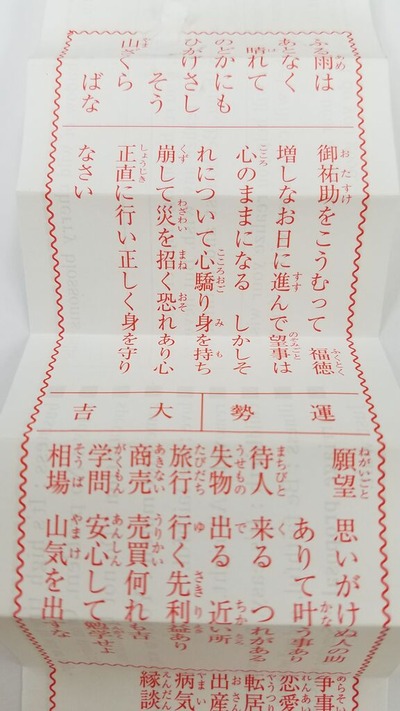 ふる雨は
あとなく
晴れて
のどかにも
ひかげさし
そう
山ざくら
ばな
御祐助をこうむって 福徳
増しなお日に進んで望事は
心のままになる しかしそ
れについて心驕り身を持ち
崩して災を招く恐れあり心
正直に行い正しく身を守り
なさい
運勢
大吉
願望 思いがけぬ人の助
ありて叶う事あり
待人 来る つれがある
失物 出る 近い所
旅行 行く先利益あり
商売 売買何れも吉
学問 安心して勉学せよ
相場 山気を出すな
争事
恋愛
転居
出産
病気
縁談